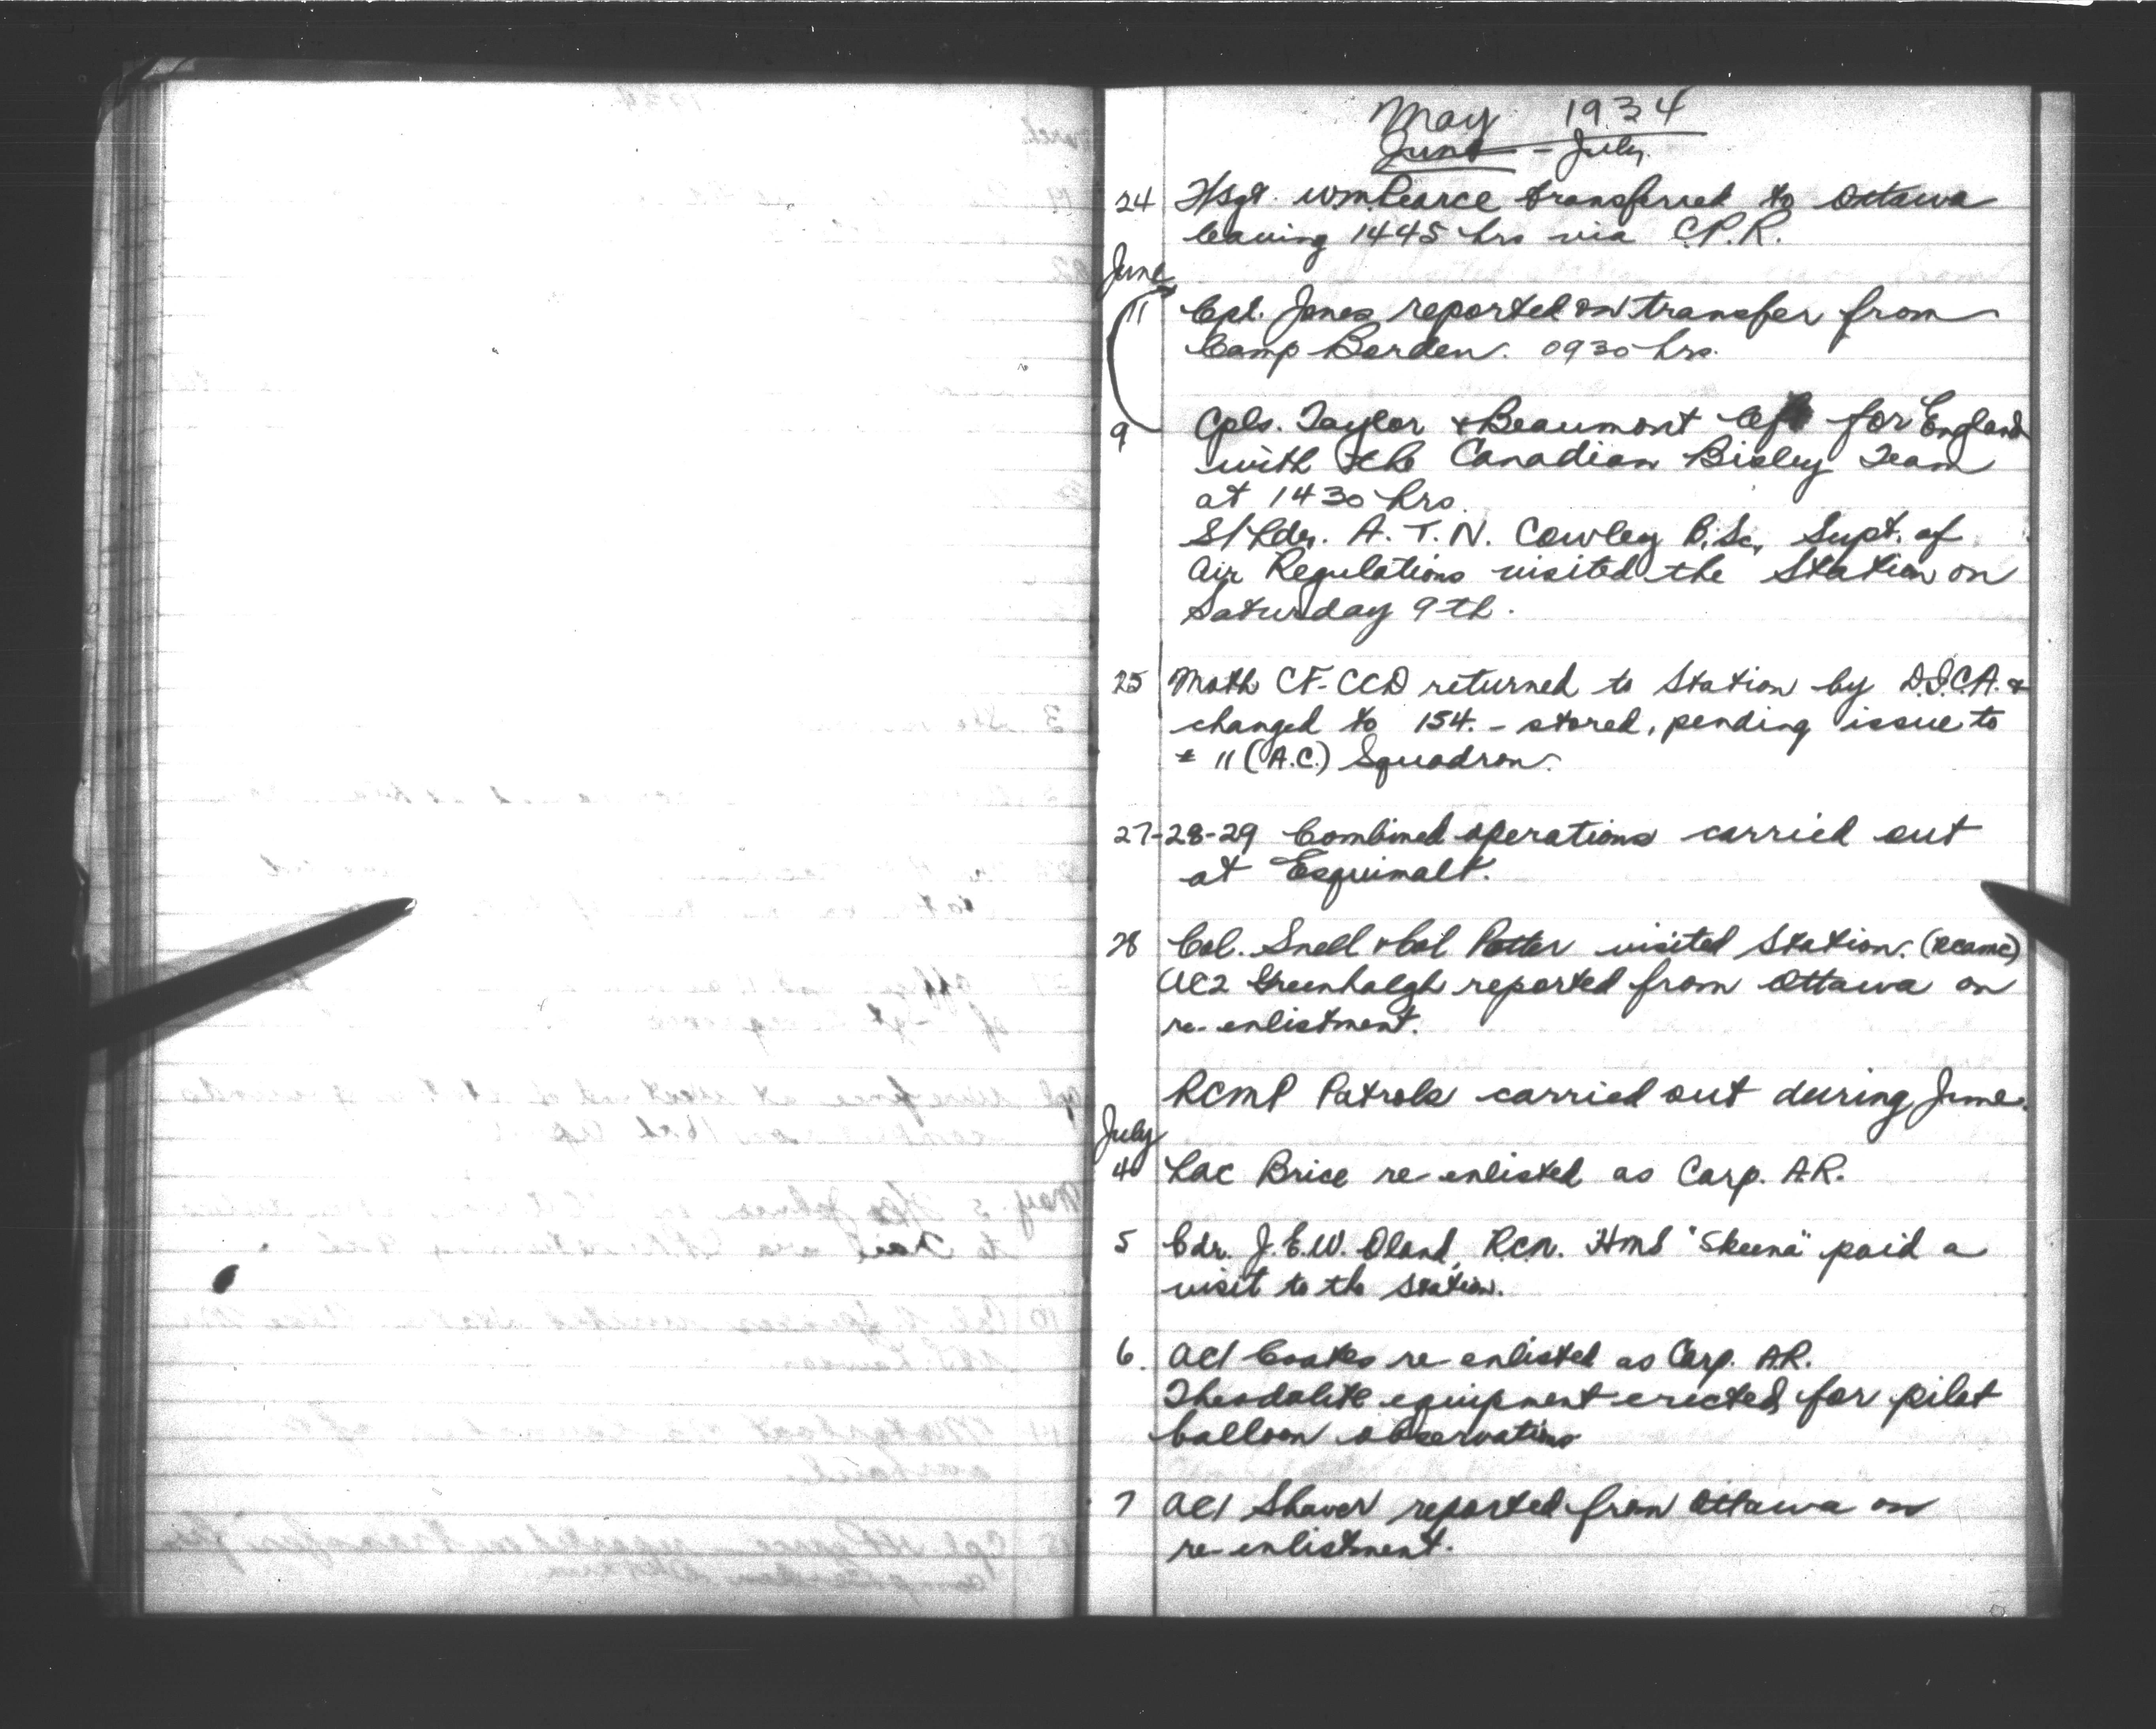 May 1934
June - July
24 F/Sgt. Wm Pearce transferred to Ottawa
leaving 1445 hrs via C.P.R.
June
11 Cpl. Jones reported on transfer from
Camp Borden. 0930 hrs.
9 Cpls. Taylor & Beaumont left for England
with the Canadian Bisley Team
at 1430 hrs.
S/Ldr. A. T. N. Cowley B.Sc, Supt. of
Air Regulations visited the Station on
Saturday 9th.
25 Moth CF-CCD returned to Station by D.S.C.A. &
changed to 154. - stored, pending issue to
# 11 (A.C.) Squadron.
27-28-29 Combined operations carried out
at Esquimalt.
28 Col. Snell & Col Potter visited Station. (RCAMC)
AC2 Greenhalgh reported from Ottawa on
re-enlistment.
RCMP Patrols carried out during June.
July
4 LAC Brice re-enlisted as Carp. A.R.
5 Cdr. J. E. W. Oland, RCN. HMS "Skeena" paid a
visit to the station.
6. AC1 Coates re-enlisted as Carp. A.R.
Theodolite equipment erected for pilot
balloon observations
7 AC1 Shaver reported from Ottawa on
re-enlistment.